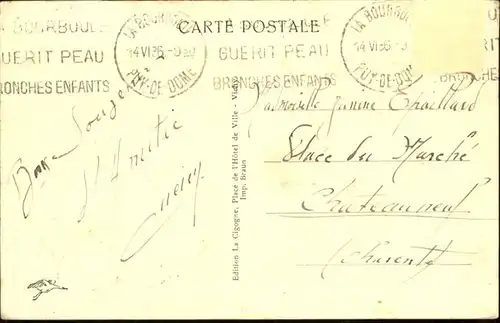 CARTE POSTALE
LA BOURBOULE
GUERIT PEAU
BRONCHES ENFANTS
LA BOURBOULE
14 VI 36
PUY-DE-DOME
GUERIT PEAU
BRONCHES ENFANTS
LA BOURBOULE
14 VI 36
PUY-DE-DOME
BRONCHES
Bons
d'Amitié
Edition La Cigogne, Place de l'Hôtel de Ville - Vichy
Imp. Braun
Mademoiselle Janine
Place du Marché
Chateauneuf
Charente